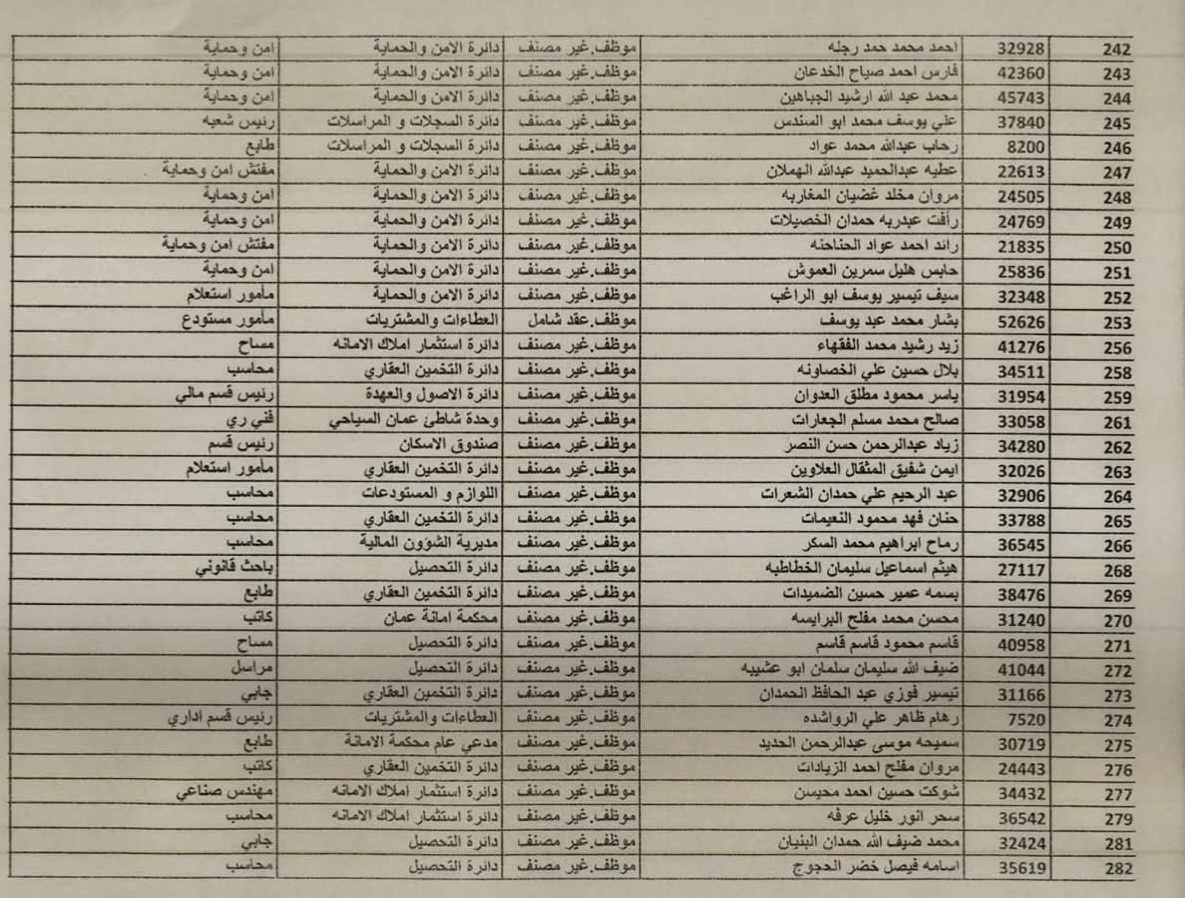 242 32928 احمد محمد حمد رجله موظف.غير مصنف دائرة الامن والحماية امن وحماية
243 42360 فارس احمد صياح الخدعان موظف.غير مصنف دائرة الامن والحماية امن وحماية
244 45743 محمد عبد الله ارشيد الجباهين موظف.غير مصنف دائرة الامن والحماية امن وحماية
245 37840 علي يوسف محمد ابو السندس موظف.غير مصنف دائرة السجلات و المراسلات رئيس شعبه
246 8200 رحاب عبدالله محمد عواد موظف.غير مصنف دائرة السجلات و المراسلات طابع
247 22613 عطيه عبدالحميد عبدالله الهملان موظف.غير مصنف دائرة الامن والحماية مفتش امن وحماية
248 24505 مروان مخلد غضيان المغاربه موظف.غير مصنف دائرة الامن والحماية امن وحماية
249 24769 رأفت عبدربه حمدان الخصيلات موظف.غير مصنف دائرة الامن والحماية امن وحماية
250 21835 رائد احمد عواد الحناحنه موظف.غير مصنف دائرة الامن والحماية مفتش امن وحماية
251 25836 حابس هليل سمرين العموش موظف.غير مصنف دائرة الامن والحماية امن وحماية
252 32348 سيف تيسير يوسف ابو الراغب موظف.غير مصنف دائرة الامن والحماية مأمور استعلام
253 52626 بشار محمد عبد يوسف موظف.عقد شامل العطاءات والمشتريات مأمور مستودع
256 41276 زيد رشيد محمد الفقهاء موظف.غير مصنف دائرة استثمار املاك الامانه مساح
258 34511 بلال حسين علي الخصاونه موظف.غير مصنف دائرة التخمين العقاري محاسب
259 31954 ياسر محمود مطلق العدوان موظف.غير مصنف دائرة الاصول والعهدة رئيس قسم مالي
261 33058 صالح محمد مسلم الجعارات موظف.غير مصنف وحدة شاطئ عمان السياحي فني ري
262 34280 زياد عبدالرحمن حسن النصر موظف.غير مصنف صندوق الاسكان رئيس قسم
263 32026 ايمن شفيق المثقال العلاوين موظف.غير مصنف دائرة التخمين العقاري مأمور استعلام
264 32906 عبد الرحيم علي حمدان الشعرات موظف.غير مصنف اللوازم و المستودعات محاسب
265 33788 حنان فهد محمود النعيمات موظف.غير مصنف دائرة التخمين العقاري محاسب
266 36545 رماح ابراهيم محمد السكر موظف.غير مصنف مديرية الشؤون المالية محاسب
268 27117 هيثم اسماعيل سليمان الخطاطبه موظف.غير مصنف دائرة التحصيل باحث قانوني
269 38476 بسمه عمير حسين الضميدات موظف.غير مصنف دائرة التخمين العقاري طابع
270 31240 محسن محمد مفلح البرايسه موظف.غير مصنف محكمة امانة عمان كاتب
271 40958 قاسم محمود قاسم قاسم موظف.غير مصنف دائرة التحصيل مساح
272 41044 ضيف الله سليمان سلمان ابو عشيبه موظف.غير مصنف دائرة التحصيل مراسل
273 31166 تيسير فوزي عبد الحافظ الحمدان موظف.غير مصنف دائرة التخمين العقاري جابي
274 7520 رهام ظاهر علي الرواشده موظف.غير مصنف العطاءات والمشتريات رئيس قسم اداري
275 30719 سميحه موسى عبدالرحمن الحديد موظف.غير مصنف مدعي عام محكمة الامانة طابع
276 24443 مروان مفلح احمد الزيادات موظف.غير مصنف دائرة التخمين العقاري كاتب
277 34432 شوكت حسين احمد محيسن موظف.غير مصنف دائرة استثمار املاك الامانه مهندس صناعي
279 36542 سحر انور خليل عرفه موظف.غير مصنف دائرة استثمار املاك الامانه محاسب
281 32424 محمد ضيف الله حمدان البنيان موظف.غير مصنف دائرة التحصيل جابي
282 35619 اسامه فيصل خضر الحجوج موظف.غير مصنف دائرة التحصيل محاسب